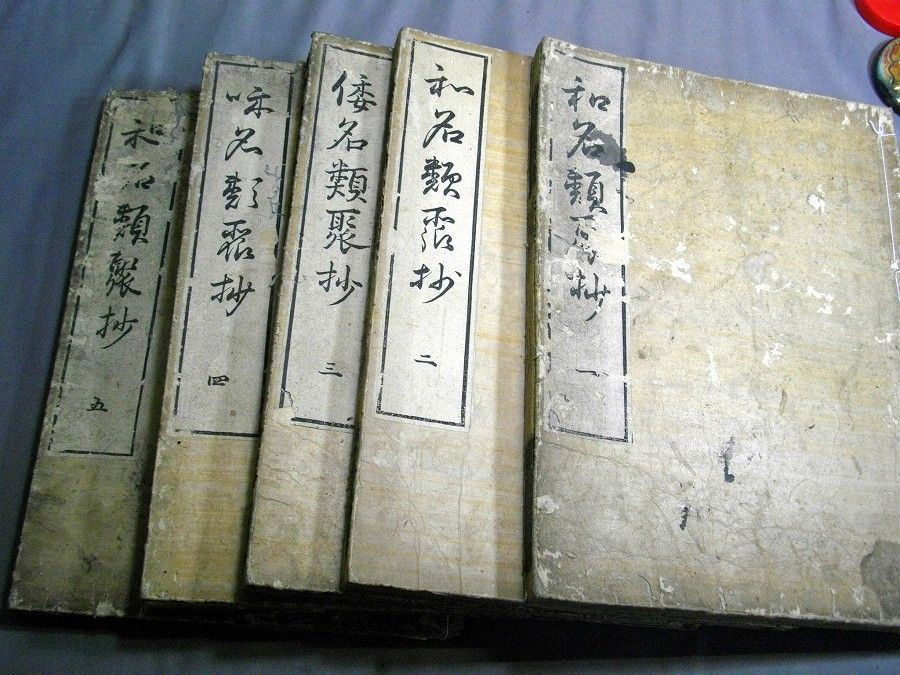 和名類聚抄 一
和名類聚抄 二
倭名類聚抄 三
咊名類聚抄 四
和名類聚抄 五